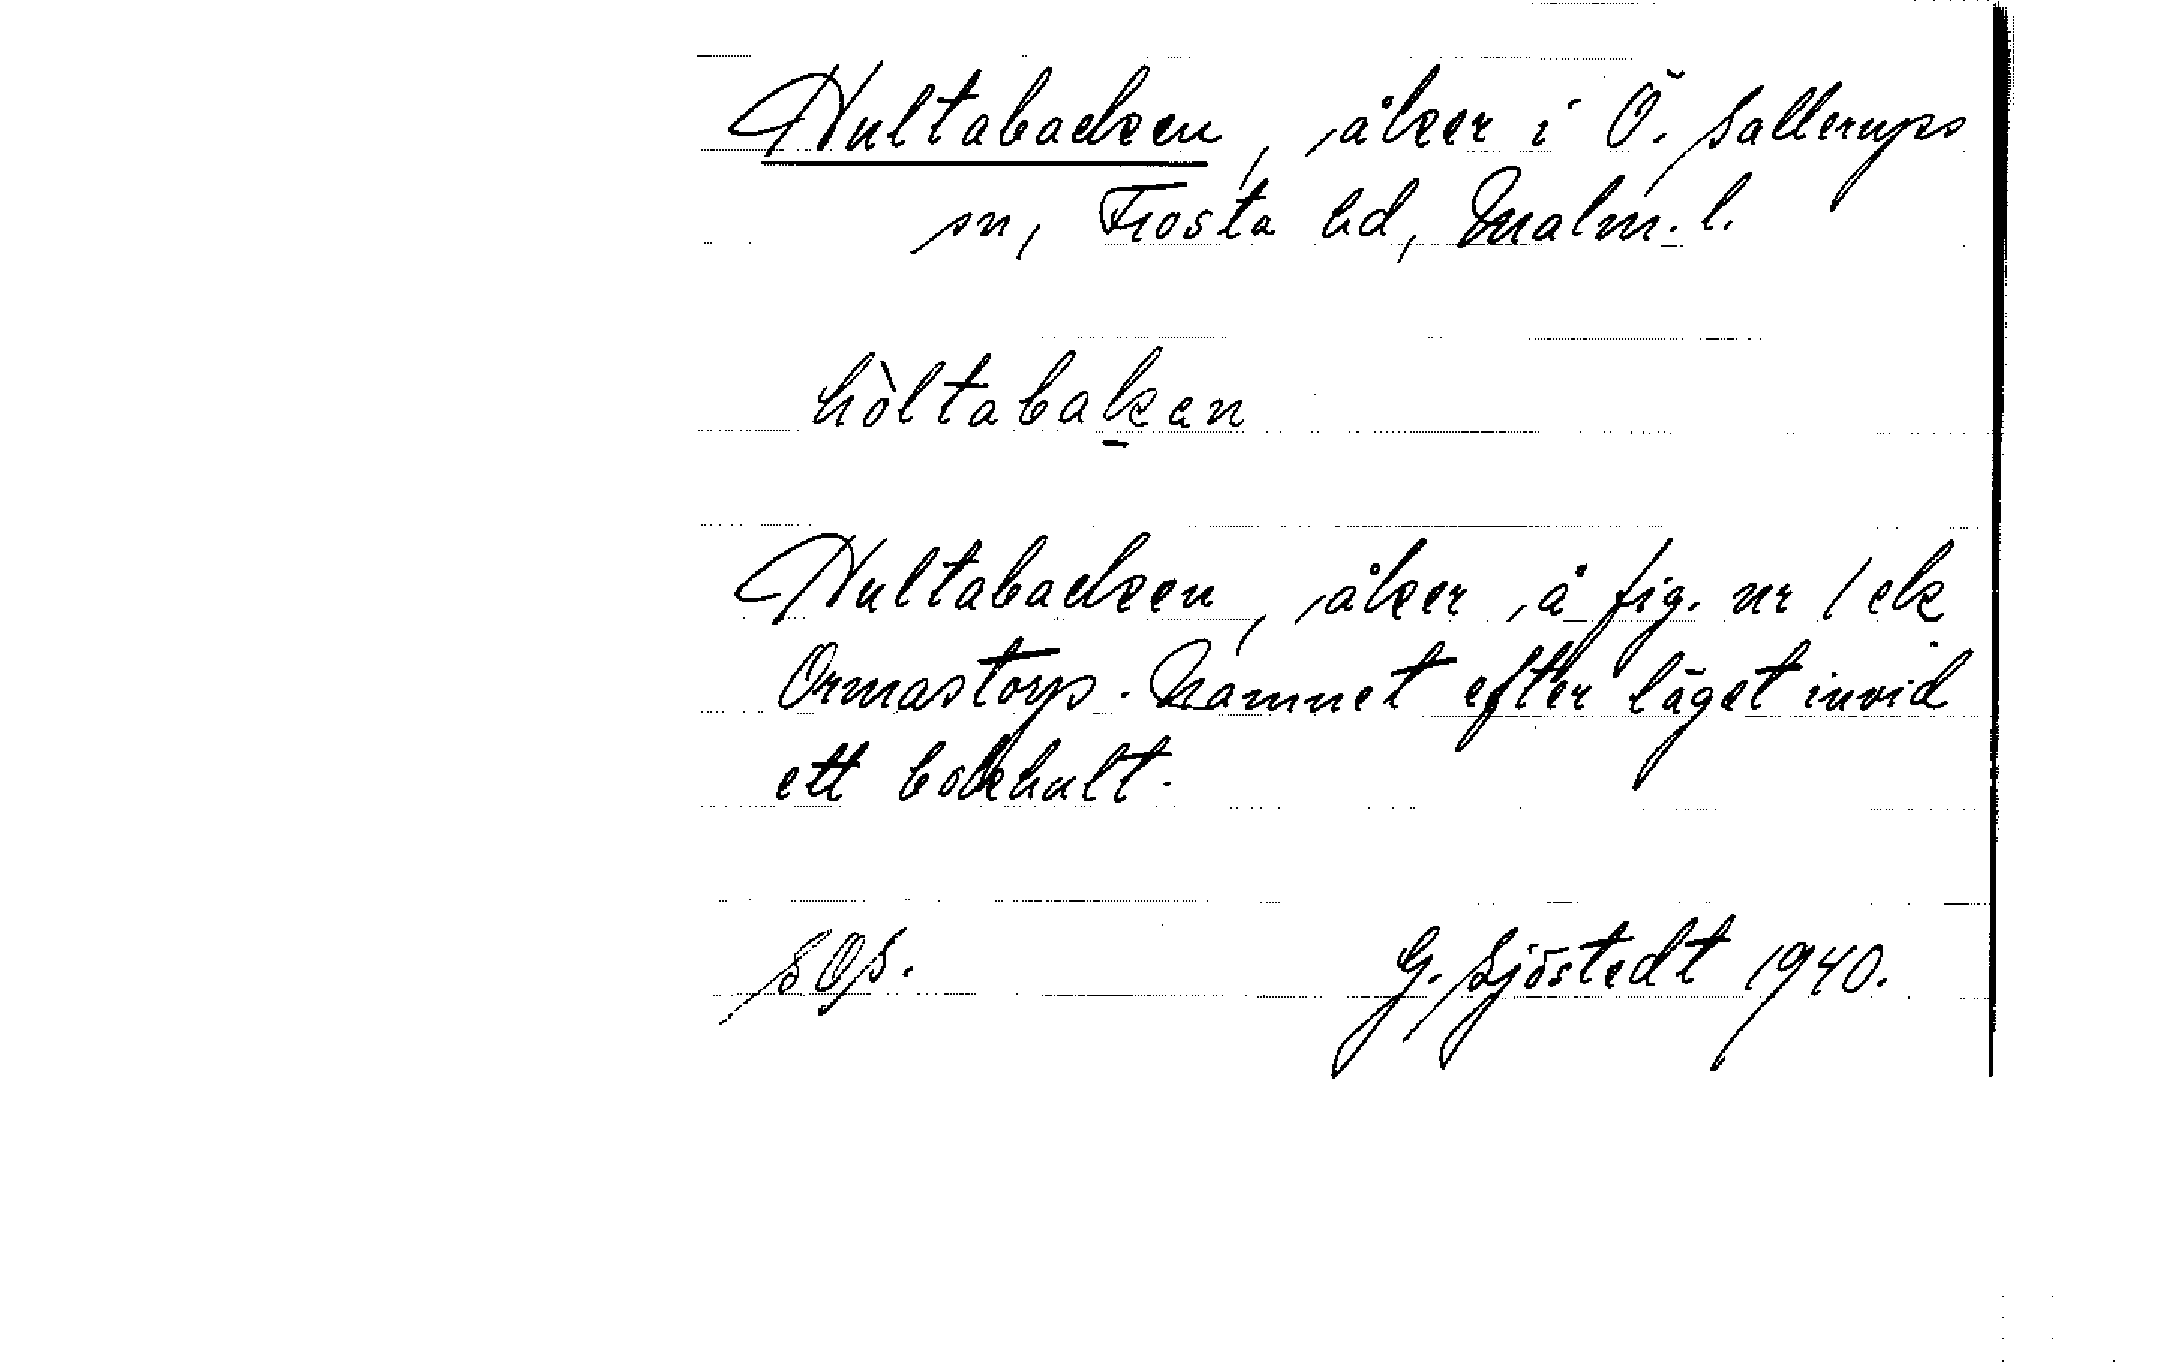 Hultabacken, åker i Ö. Sallerups
sn, Frosta hd, Malm. l.
hòltabaken
Hultabacken, åker å fig. nr 1 ek
Ormastorp. Namnet efter läget invid
ett bokhult.
SOS.
G. Sjöstedt 1940.